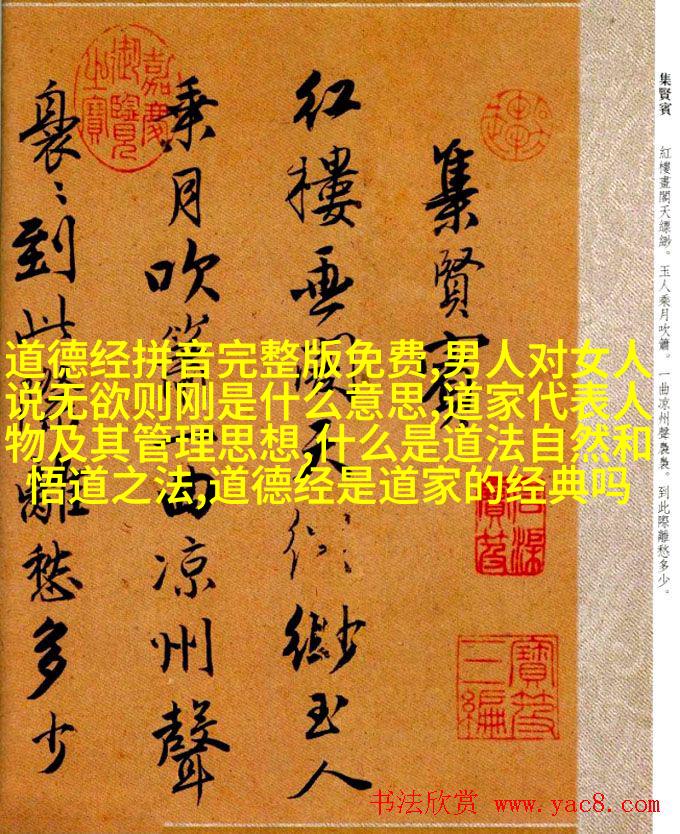 集賢賓
紅樓畫閣天縹緲。玉人乘月吹簫。一曲凉州聲裊裊。到此際離愁多少。
集賢賓
紅樓畫閣天縹緲玉人
乘月吹簫一曲凉州聲
裊〻到此際離愁多少
嘉慶御覽之寶
寶笈三編
道德经拼音完整版免费,男人对女人
说无欲则刚是什么意思,道家代表人
物及其管理思想,什么是道法自然和
悟道之法,道德经是道家的经典吗
书法欣赏 www.yac8.com